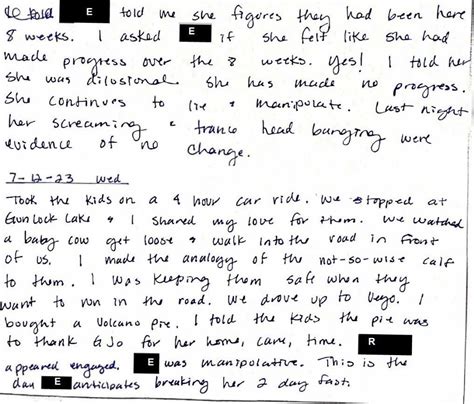 E told me she figures they had been here
8 weeks. I asked E if she felt like she had
made progress over the 8 weeks. Yes! I told her
she was dilosional. She has made no progress.
She continues to lie & manipulate. Last night
her screaming & trance head banging were
evidence of no change.
7-12-23 wed
Took the kids on a 4 hour car ride. We stopped at
Gunlock Lake & I shared my love for them. We watched
a baby cow get loose & walk into the road in front
of us. I made the analogy of the not-so-wise calf
to them. I was keeping them safe when they
want to run in the road. We drove up to Veyo. I
bought a Volcano Pie. I told the kids the pie was
to thank GJo for her home, care, time. R
appeared engaged. E was manipulative. This is the
day E anticipates breaking her 2 day fast.